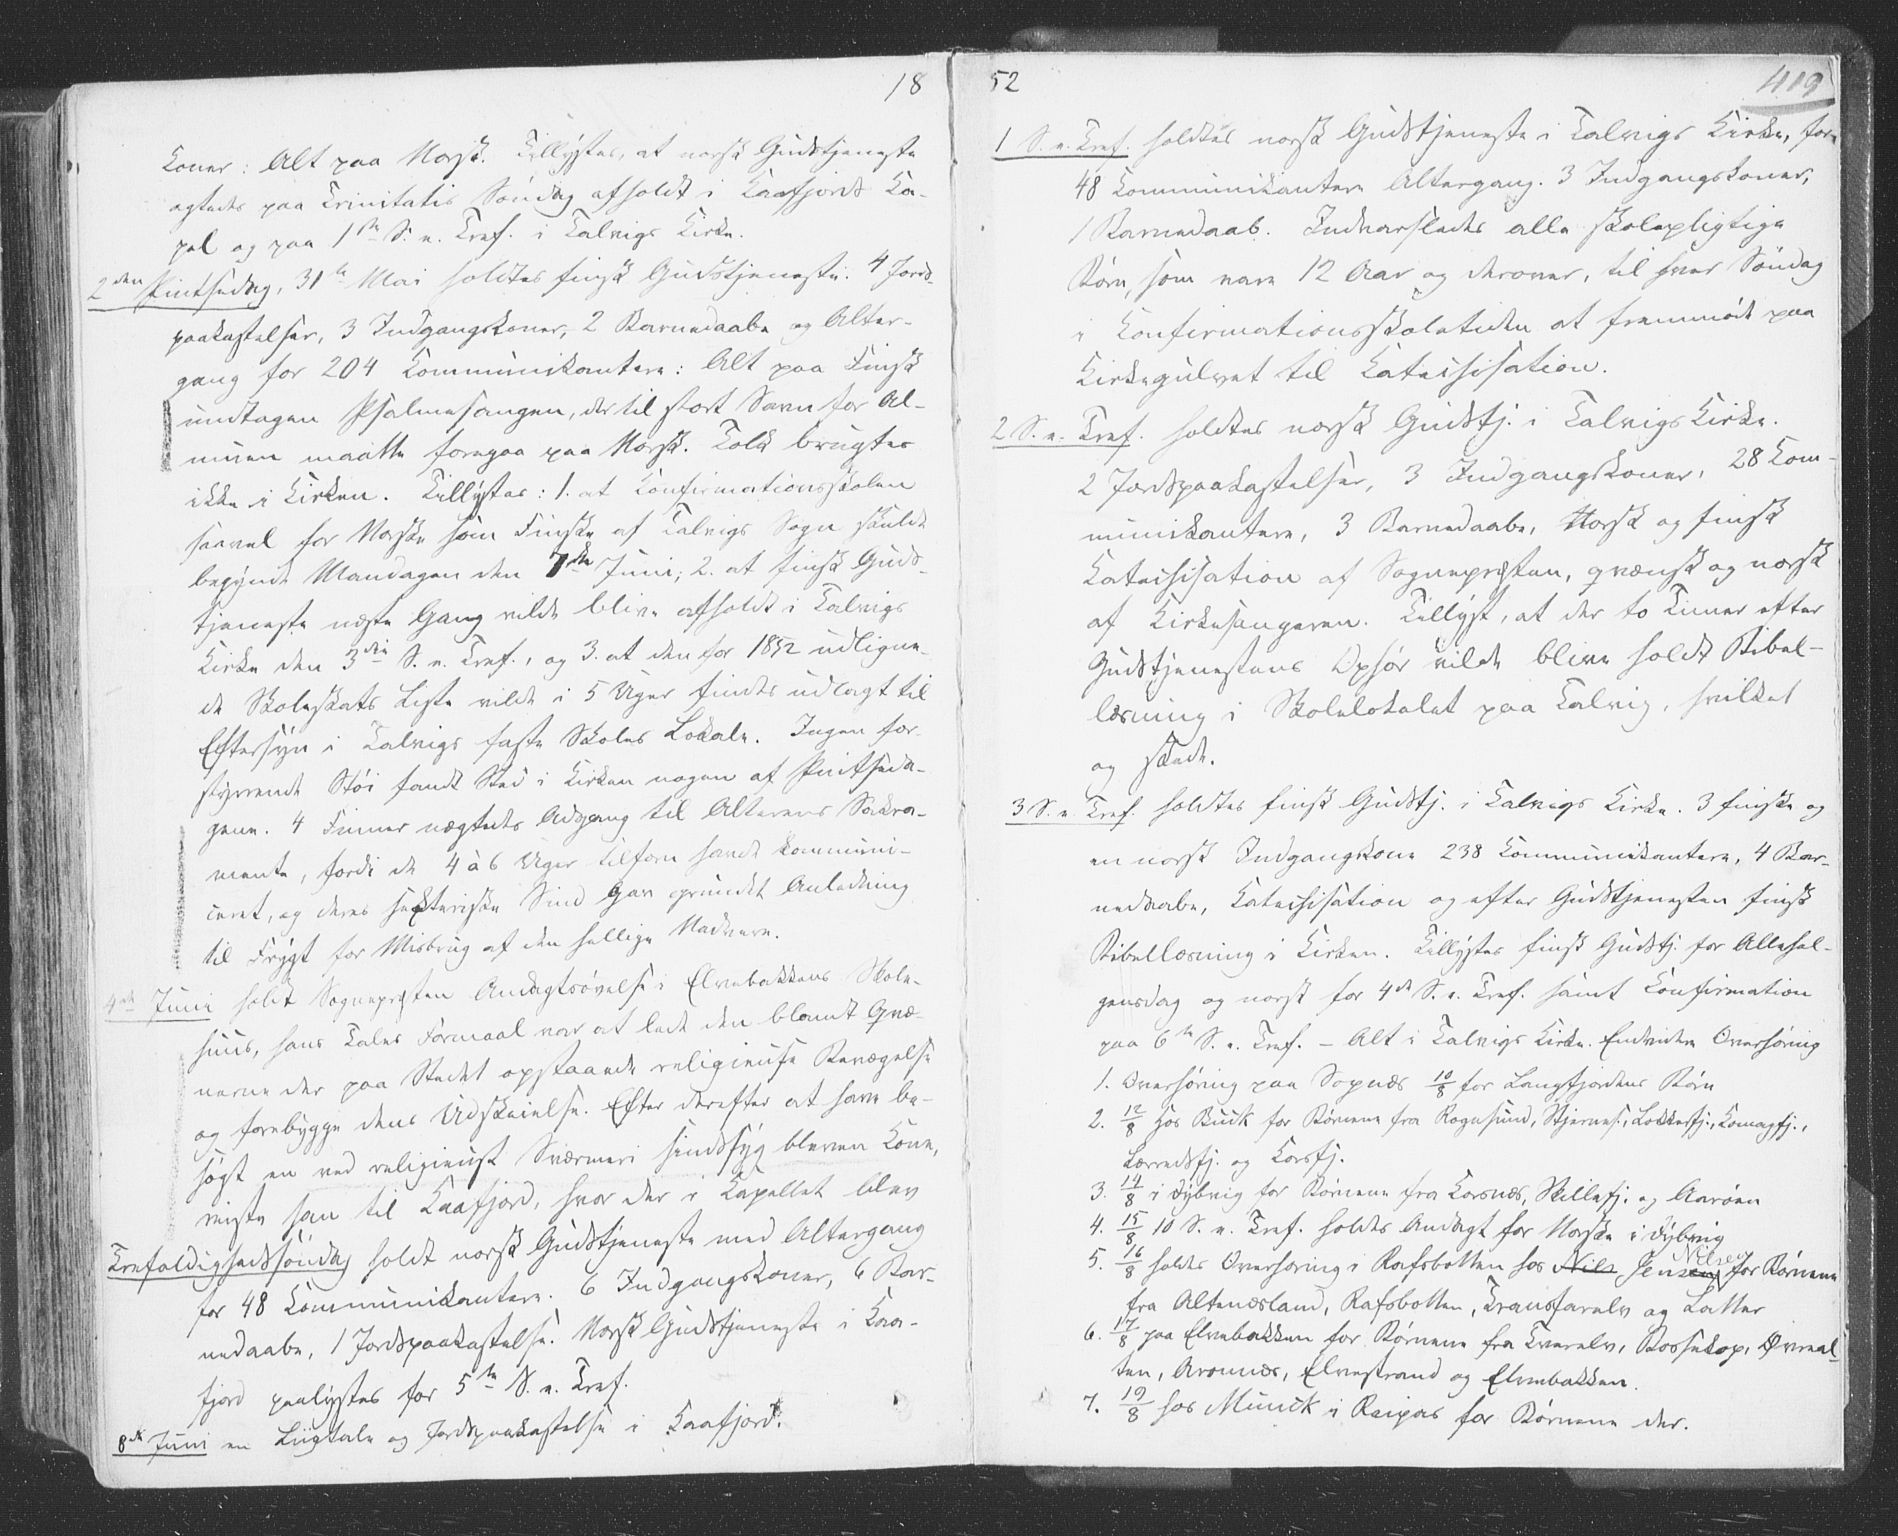 18
koner: Alt paa Norsk. Tillystes, at norsk Gudstjeneste
agtedes paa Trinitatis Søndag afholdt i Kaafjords Ka-
pel og paa 1ste S. e. Tref. i Talvigs Kirke.
2den Pintsedag, 31te Mai holdtes finsk Gudstjeneste. 4 Jords-
paakastelser, 3 Indgangskoner, 2 Barnedaabe og Alter-
gang for 204 Kommunikantere: Alt paa Finsk
undtagen Psalmesangen, der til stort Savn for Al-
muen maatte foregaa paa Norsk. Tolk brugtes
ikke i Kirken. Tillystes: 1. at Konfirmationsskolen
saavel for Norske som Finske af Talvigs Sogn skulde
begynde Mandagen den 7de Juni; 2. at finsk Guds-
tjeneste næste Gang vilde blive afholdt i Talvigs
Kirke den 3die S. e. Tref., og 3. at den for 1852 udligne-
de Skoleskats Liste vilde i 5 Uger findes udlagt til
Eftersyn i Talvigs faste Skoles Lokale. Ingen for-
styrrende Støi fandt Sted i Kirken nogen af Pintseda-
gene. 4 Finner nægtedes Adgang til Alterens Sakra-
mente, fordi de 4 à 6 Uger tilforn havde kommuni-
ceret, og deres sekteriske Sind gav grundet Anledning
til Frygt for Misbrug af den hellige Nadvere.
4de Juni holdt Sognepresten Andagtsøvelse i Elvebakkens Skole-
huus, hans Tales Formaal var at lede den blandt Qvæ-
nerne der paa Stedet opstaaede religieuse Bevægelse
og forebygge dens Udskeielse. Efter derefter at have be-
søgt en ved religieust Sværmeri sindssyg bleven Kone,
reiste han til Kaafjord, hvor der i Kapellet blev
Trefoldighedssøndag holdt norsk Gudstjeneste med Altergang
for 48 Kommunikantere. 6 Indgangskoner, 6 Bar-
nedaabe, 1 Jordspaakastelse. Norsk Gudstjeneste i Kaa-
fjord paalystes for 5te S. e. Tref.
8de Juni en Liigtale og Jordspaakastelse i Kaafjord.
52
419
1 S. e. Tref. holdtes norsk Gudstjeneste i Talvigs Kirke, for
48 Kommunikantere Altergang. 3 Indgangskoner,
1 Barnedaab. Indvarsledes alle skolepligtige
Børn, som vare 12 Aar og derover, til hver Søndag
i Konfirmationsskoletiden at fremmøde paa
Kirkegulvet til Katechisation.
2 S. e. Tref. holdtes norsk Gudstj. i Talvigs Kirke.
2 Jordspaakastelser, 3 Indgangskoner, 28 Kom-
munikantere, 3 Barnedaabe, Norsk og finsk
Katechisation af Sognepresten, qvænsk og norsk
af Kirkesangeren. Tillyst, at der to Timer efter
Gudstjenestens Ophør vilde blive holdt Bibel-
læsning i Skolelokalet paa Talvig, hvilket
og skede.
3 S. e. Tref. holdtes finsk Gudstj. i Talvigs Kirke. 3 finske og
en norsk Indgangskone 238 Kommunikantere, 4 Bar-
nedaabe, Katechisation og efter Gudstjenesten finsk
Bibellæsning i Kirken. Tillystes finsk Gudstj. for Allehel-
gensdag og norsk for 4de S. e. Tref. samt Konfirmation
paa 6te S. e. Tref. - Alt i Talvigs Kirke. Endvidere Overhøring
1. Overhøring paa Sopnæs 10/8 for Langfjordens Børn
2. 12/8 hos Buck for Børnene fra Rognsund, Stjernes., Lokkesfj., Komagfj.,
Lærredsfj. og Korsfj.
3. 14/8 i Dybvig for Børnene fra Korsnæs, Skillefj. og Aarøen
4. 15/8 10 S. e. Tref. holdes Andagt for Norske i Dybvig
5. 16/8 holdes Overhøring i Rafsbotten hos Nils Jensen Nilsen for Børnene
fra Altenæsland, Rafsbotten, Transfarelv og Latter
6. 17/8 paa Elvebakken for Børnene fra Tverelv, Bossekop, Øvreal-
ten, Aronnæs, Elvestrand og Elvebakken.
7. 19/8 hos Munck i Raipas for Børnene der.